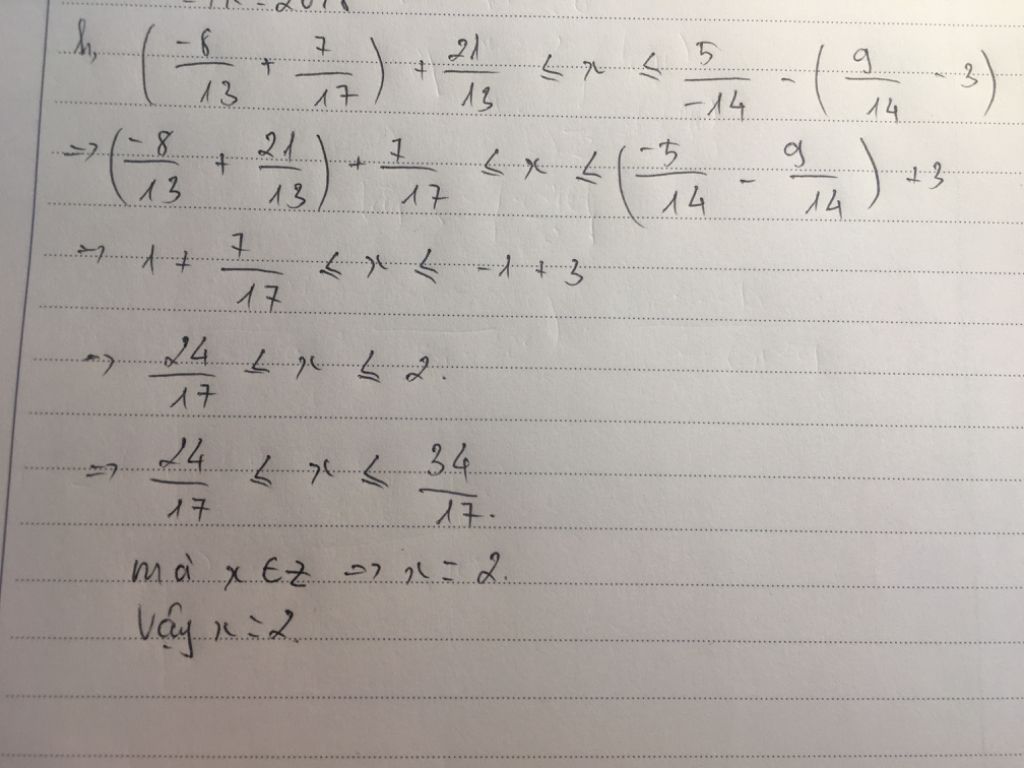 h, (-8/13 + 7/17) + 21/13 ≤ x ≤ 5/-14 - (9/14 - 3)
=> (-8/13 + 21/13) + 7/17 ≤ x ≤ (-5/14 - 9/14) + 3
=> 1 + 7/17 ≤ x ≤ -1 + 3
=> 24/17 ≤ x ≤ 2.
=> 24/17 ≤ x ≤ 34/17.
mà x ∈ Z => x = 2.
Vậy x = 2.